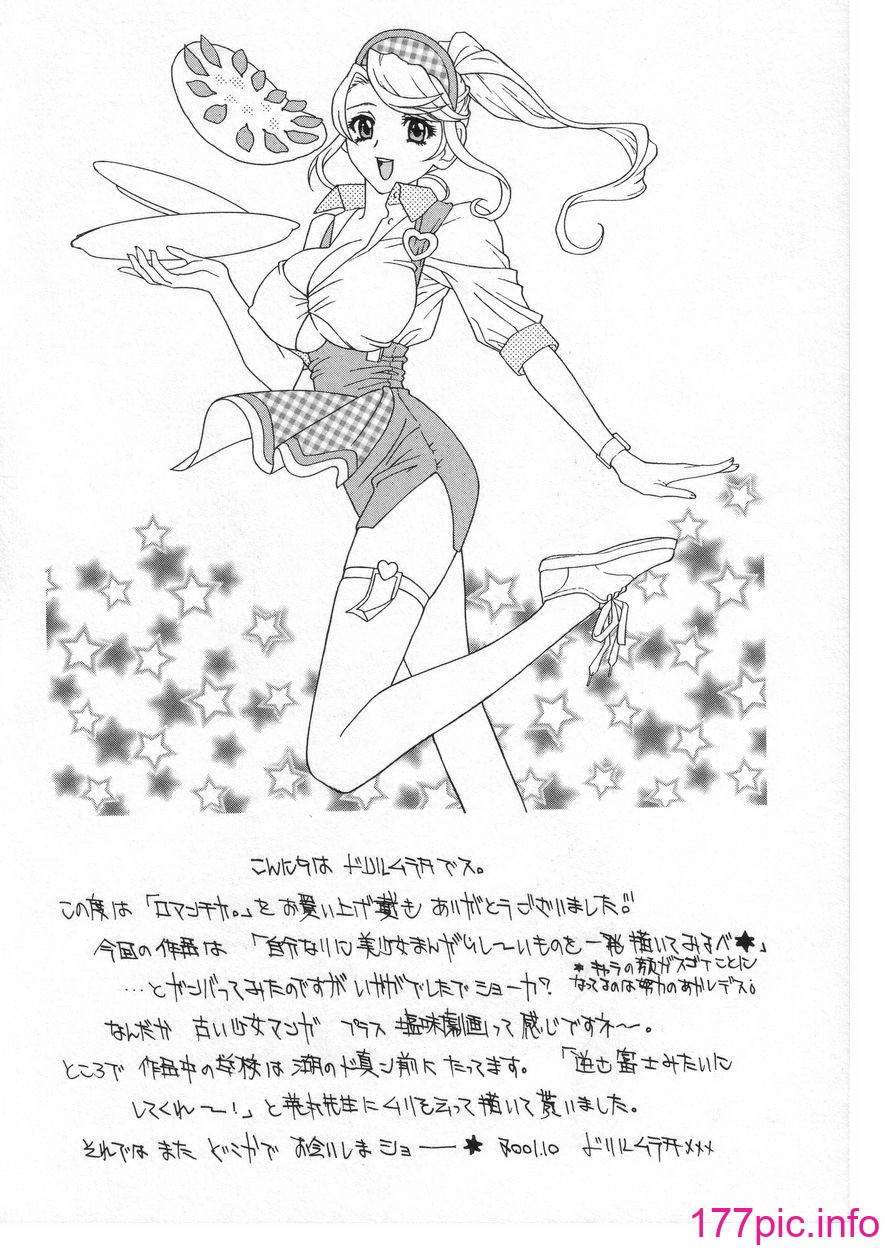 こんにちは ドリルムラタでス。
この度は「ロマンチカ。」をお買い上げ戴き ありがとうございました!!
今回の作品は 「自分なりに美少女まんがらし〜いものを一発 描いてみるべ★」
*キャラの顔がスゴイことに
なってるのは努力のあかしデス。
…とガンバってみたのですが いかがでしたでショーカ?
なんだか 古い少女マンガ プラス 塩味劇画って感じですネ〜。
ところで 作品中の学校は 湖のド真ン前にたってます。 「逆さ富士みたいに
してくれ〜!」と荒木先生にムリを云って描いて貰いました。
それでは また どこかで お会いしまショー★ 2001.10 ドリルムラタ×××
177pic.info